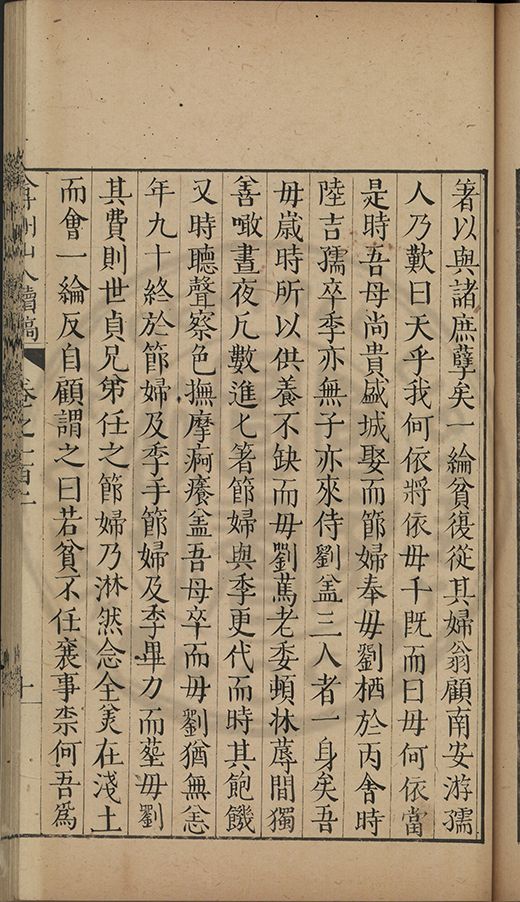 著以與諸庶孽矣一綸貧復從其婦翁顧南安游孺
人乃歎曰天乎我何依將依毋千既而曰毋何依當
是時吾母尚貴盛城娶而節婦奉毋劉栖於丙舍時
陸吉孺卒季亦無子亦來侍劉盖三人者一身矣吾
毋歲時所以供養不缺而毋劉篤老委頓牀蓐間獨
善噉晝夜凡數進匕箸節婦與季更代而時其飽饑
又時聽聲察色撫摩痾癢盖吾母卒而毋劉猶無恙
年九十終於節婦及季手節婦及季畢力而塟毋劉
其費則世貞兄弟任之節婦乃淋然念全美在淺土
而會一綸反自顧謂之曰若貧不任襄事柰何吾爲
弇州山人續稿 卷之一百二 十